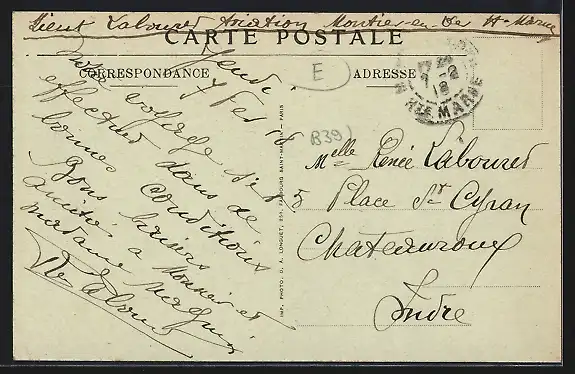 Lieut Labouret Aviation Montier-en-Der Hte Marne
CARTE POSTALE
CORRESPONDANCE
ADRESSE
E
B39
HTE MARNE
Jeudi
7 Fév 18
Notre voyage s'est
effectué dans de
bonnes conditions
Bons baisers
amitiés à Monsieur et
madame
R Labouret
Melle Renée Labouret
5 Place St Cyran
Chateauroux
Indre
IMP. PHOTO. D. A. LONGUET, 250, FAUBOURG SAINT-MARTIN - PARIS